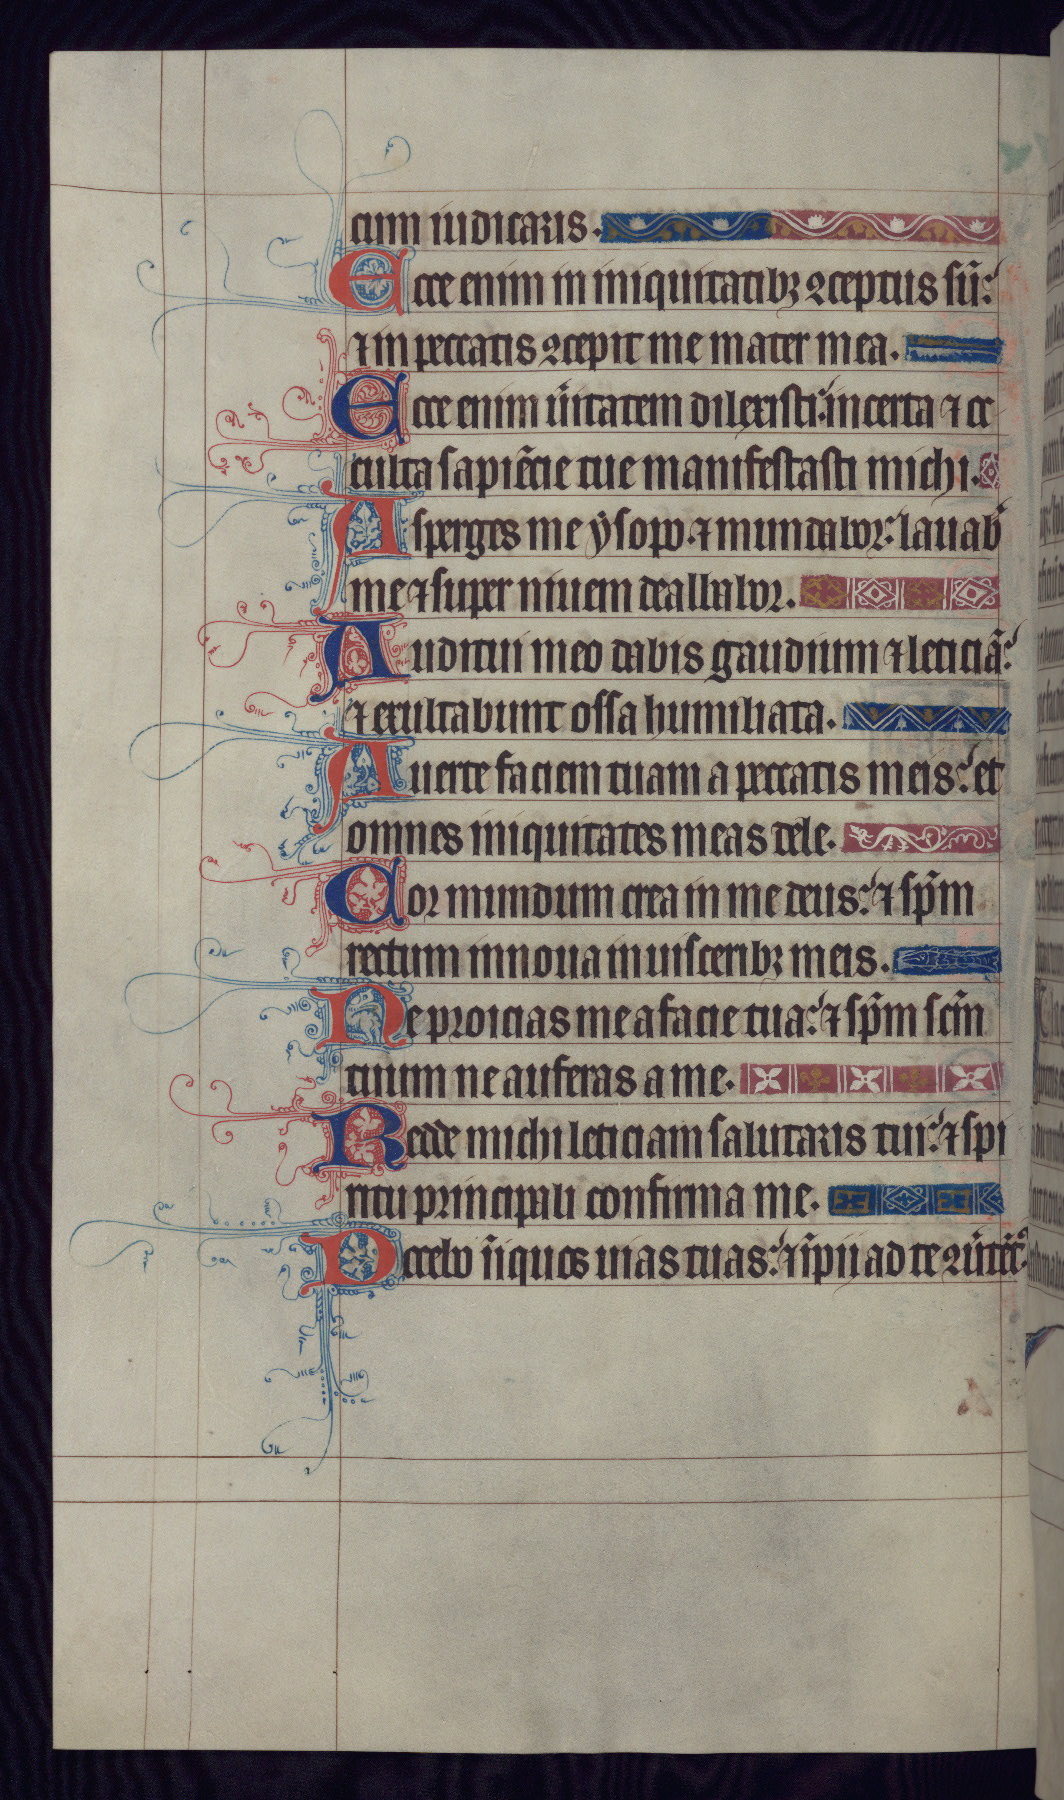 cum iudicaris.
Ecce enim in iniquitatibꝫ ꝯceptus sū:
⁊ in peccatis ꝯcepit me mater mea.
Ecce enim ũitatem dilexisti: incerta ⁊ oc
culta sapiẽcie tue manifestasti michi.
Asperges me ysopo ⁊ mundabor: lauab̃
me ⁊ super niuem dealbabor.
Auditui meo dabis gaudium ⁊ leticiã:
⁊ exultabunt ossa humiliata.
Auerte faciem tuam a peccatis meis: et
omnes iniquitates meas dele.
Cor mundum crea in me deus: ⁊ sp̃m
rectum innoua in uisceribꝫ meis.
Ne proicias me a facie tua: ⁊ sp̃m scm̃
tuum ne auferas a me.
Redde michi leticiam salutaris tui: ⁊ spi
ritu principali confirma me.
Docebo ĩiquos uias tuas: ⁊ ĩpij ad te ꝯũtẽt᷑